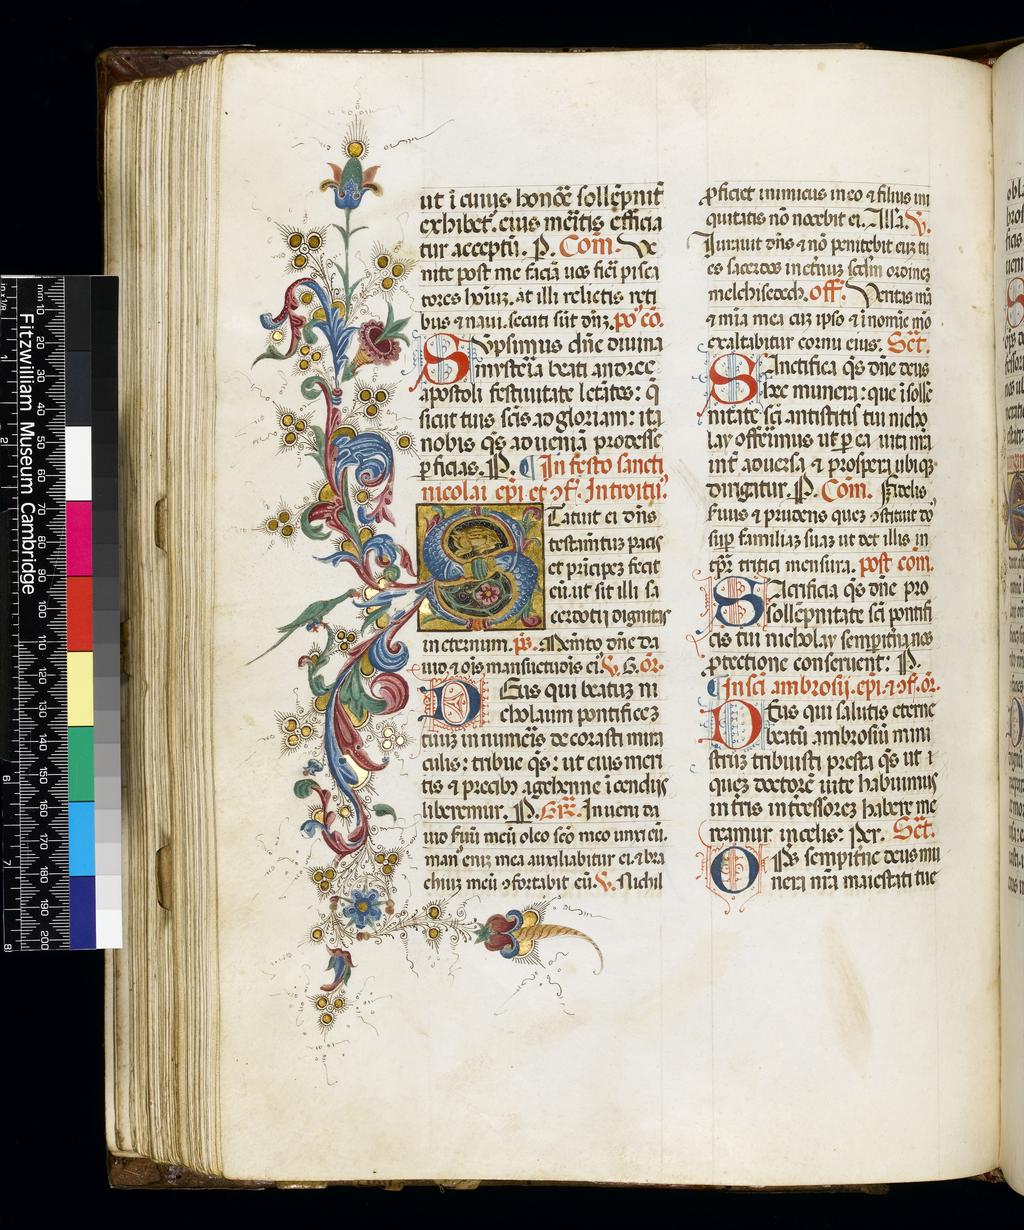 ut ī cuius honoē sollēpnit͛
exhibet͛. eius meītis efficia
tur acceptū. P. Com̄. Ve
nite post me faciā uos fieri pisca
tores hoīuʒ. at illi relictis reti
bus ⁊ naui. secuti sūt dn̄ʒ. po' cō.
Sumpsimus dn̄e diuina
misteria beati andree
apostoli festiuitate letātes: q̄
sicut tuis scīs ad gloriam: ita
nobis qs̄ ad ueniā prodesse
ꝑficias. P. ¶ In festo sancti
nicolai epī et ꝯf. Introitꝰ.
Statuit ei dn̄s
testam̄tuʒ pacis
et pricipeʒ fecit
eū. ut sit illi sa
cerdotij dignitas
in eternum. ps̄. Memēto dn̄e da
uid ⁊ oīs mansuetudīs eiꝰ. V. G. or̄.
Deus qui beatuʒ ni
cholaum pontificeʒ
tuuʒ innumeīs decorasti mira
culis: tribue qs̄: ut eius meri
tis ⁊ precibꝰ a gehenne īcendijs
liberemur. P. Gr̄. Inueni da
uid ƒuū meū oleo scō meo unxi eū.
manꝰ enīʒ mea auxiliabitur ei. ⁊ bra
chiuʒ meū ꝯfortabit eū. V. Nichil
ꝓficiet inimicus in eo ⁊ filius ini
quitatis nō nocebit ei. Alła. V.
Iurauit dn̄s ⁊ nō penitebit euʒ tu
es sacerdos in et͛nuʒ scd̄m ordineʒ
melchisedech. off. Veritas mā
⁊ mīa mea cuʒ ipso ⁊ ī noīe mō
exaltabitur cornu eius. Sc̄t.
Sanctifica qs̄ dn̄e deus
hec munera: que ī solle
nitate scī antistitis tui nicho
lay offerimus ut ꝑ ea uita nr̄a
int͛ aduersa ⁊ prospera ubiqʒ
dirigatur. P. Com̄. Fidelis
ƒuus ⁊ prudens queʒ ꝯstituit dō
sup familiaʒ suaʒ ut det illis in
tp̄r tritici mensura. post com̄.
Sacrificia qs̄ dn̄e pro
sollēpnitate scī pontifi
cis tui nicholay sempitīna nos
ꝓtectione conseruent: P.
¶ In scī ambrosij. epī. ⁊ ꝯf. or̄.
Deus qui salutis eterne
beatū ambrosiū mini
struʒ tribuisti presta qs̄ ut ī
queʒ doctorē uite habuimus
in t͛ris intercessoreʒ habere me
reamur in celis: Per. Sc̄t.
Ops̄ sempit͛ne deus mu
neri nr̄a maiestati tue
Fitzwilliam Museum Cambridge
mm 10 20 30 40 50 60 70 80 90 100 110 120 130 140 150 160 170 180 190 200